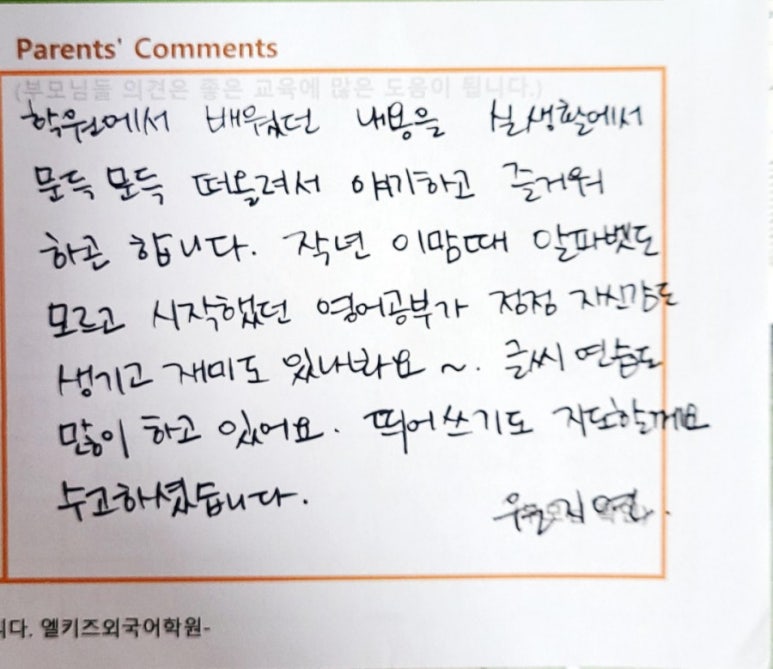 Parents' Comments
(부모님들 의견은 좋은 교육에 많은 도움이 됩니다.)
학원에서 배웠던 내용을 실생활에서
문득 문득 떠올려서 얘기하고 즐거워
하곤 합니다. 작년 이맘때 알파벳도
모르고 시작했던 영어공부가 점점 자신감도
생기고 재미도 있나봐요 ~. 글씨 연습도
많이 하고 있어요. 띄어쓰기도 지도할께요
수고하셨습니다.
니다. 엘키즈외국어학원-